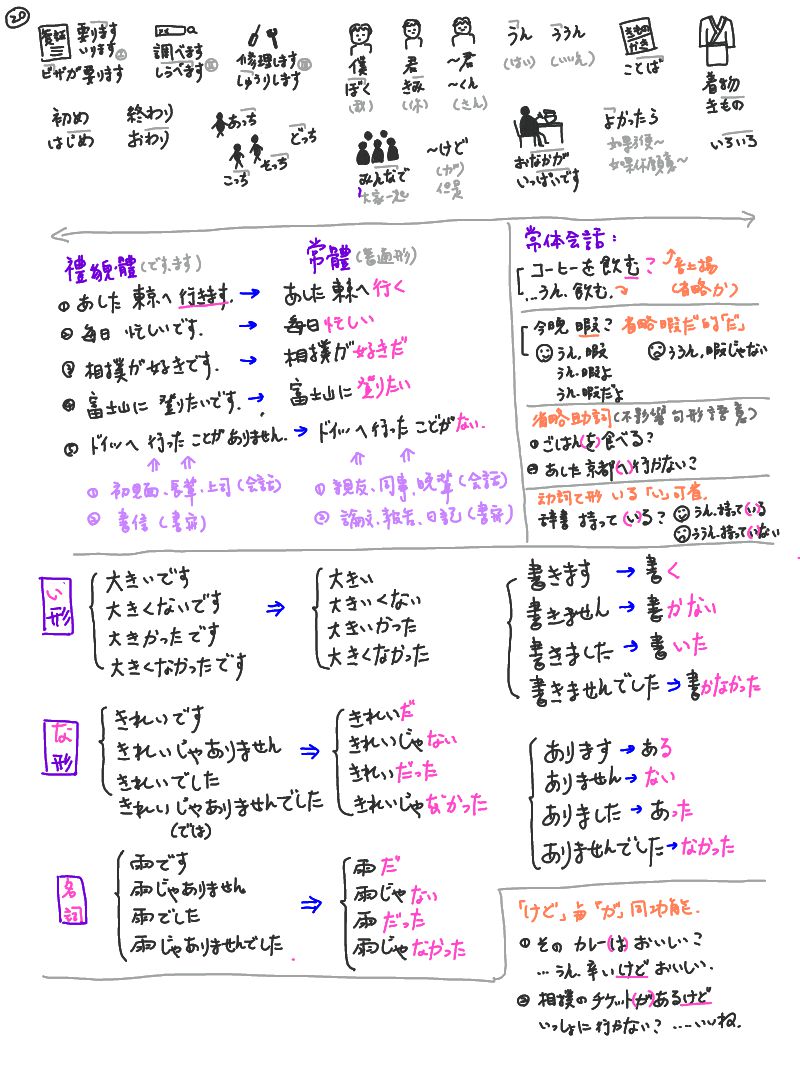 20
簽証
要ります
いります
ビザが要ります
調べます
しらべます
修理します
しゅうりします
僕
ぼく
(我)
君
きみ
(你)
～君
～くん
(さん)
うん
(はい)
ううん
(いいえ)
きもの
かき
ことば
着物
きもの
初め
はじめ
終わり
おわり
あっち
こっち
そっち
どっち
みんなで
大家一起
～けど
(が)
但是
おなかが
いっぱいです
よかったら
如果方便～
如果你願意～
いろいろ
禮貌體(です.ます)
①あした 東京へ 行きます. → あした 東京へ 行く
②毎日 忙しいです. → 毎日 忙しい
③相撲が好きです. → 相撲が好きだ
④富士山に 登りたいです. → 富士山に 登りたい
⑤ドイツへ 行った ことが ありません. → ドイツへ行った ことがない.
常體(普通形)
① 初見面、長輩、上司(会話)
② 書信(書寫)
① 親友、同事、晚輩(会話)
② 論文、報告、日記(書寫)
常体会話：
コーヒーを飲む？ 音上揚
…うん、飲む. (省略か)
今晩 暇？ 省略暇だ的「だ」
うん、暇
うん、暇よ
うん、暇だよ
ううん、暇じゃない
省略助詞(不影響句形語意)
①ごはん(を)食べる？
②あした京都(へ)行かない？
动詞て形 いる「い」可省.
辞書 持って(い)る？
うん、持って(い)る
ううん、持って(い)ない
い形
大きいです
大きくないです
大きかったです
大きくなかったです
⇒
大きい
大きいくない
大きいかった
大きくなかった
書きます → 書く
書きません → 書かない
書きました → 書いた
書きませんでした → 書かなかった
な形
きれいです
きれいじゃありません
きれいでした
きれいじゃありませんでした
(では)
⇒
きれいだ
きれいじゃない
きれいだった
きれいじゃなかった
あります → ある
ありません → ない
ありました → あった
ありませんでした → なかった
名詞
雨です
雨じゃありません
雨でした
雨じゃありませんでした
⇒
雨だ
雨じゃない
雨だった
雨じゃなかった
「けど」与「が」同功能.
①その カレー(は)おいしい？
…うん、辛いけど おいしい.
②相撲のチケット(が)あるけど
いっしょに行かない？ ……いいね.